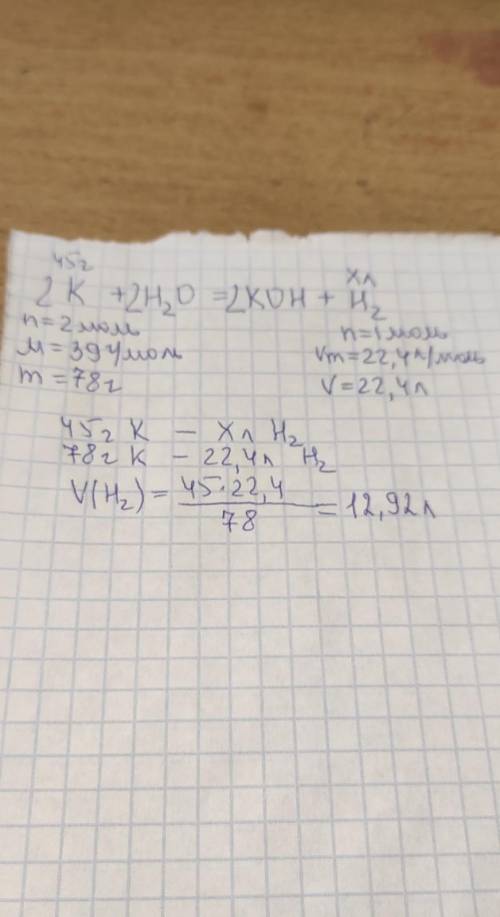 45г Xл
2K + 2H₂O = 2KOH + H₂
n = 2 моль n = 1 моль
M = 39 г/моль Vm = 22,4 л/моль
m = 78г V = 22,4л
45г K — Xл H₂
78г K — 22,4л H₂
V(H₂) = 45·22,4 / 78 = 12,92л